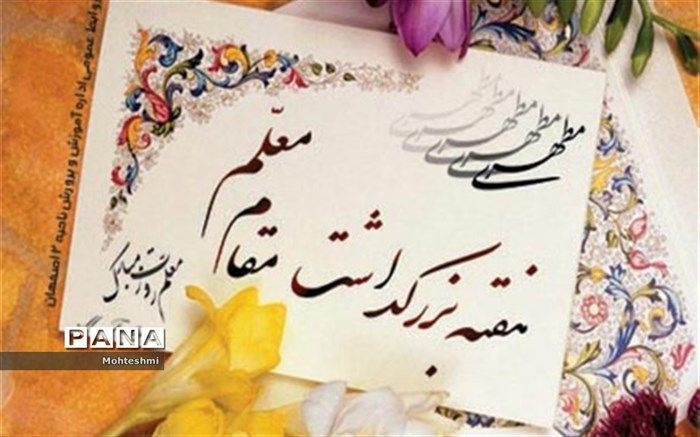 مطهری مطهری مطهری مطهری مطهری
هفته بزرگداشت
مقام معلم
معلم روزت مبارک
روابط عمومی اداره آموزش و پرورش ناحیه ۲ اصفهان
PANA
Mohteshmi